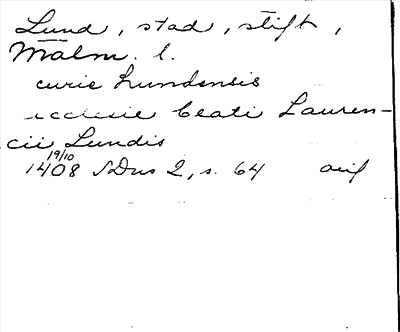 Lund, stad, stift,
Malm. l.
curie Lundensis
ecclesie beati Lauren-
cii Lundis
19/10
1408 SDns 2, s. 64 avif